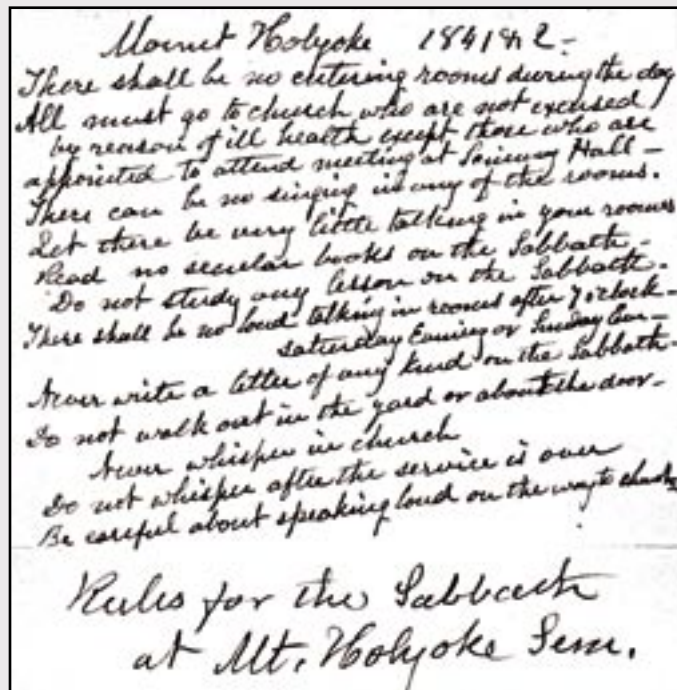 Mount Holyoke 1841 & 2 -
There shall be no entering rooms during the day
All must go to church who are not excused
by reason of ill health except those who are
appointed to attend meeting at Seminary Hall -
There can be no singing in any of the rooms.
Let there be very little talking in your rooms
Read no secular books on the Sabbath -
Do not study any lesson on the Sabbath.
There shall be no loud talking in rooms after 7 o'clock -
Saturday Evening or Sunday Eve -
Never write a letter of any kind on the Sabbath -
Do not walk out in the yard or about the door -
Never whisper in church
Do not whisper after the service is over
Be careful about speaking loud on the way to church
Rules for the Sabbath
at Mt. Holyoke Sem.